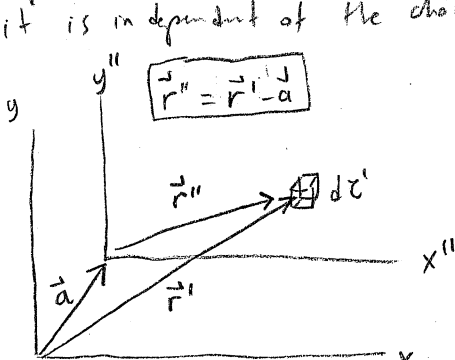 it is independent of the cho
y''
y
r⃗'' = r⃗' - a⃗
r⃗''
dτ'
x''
a⃗
r⃗'
x